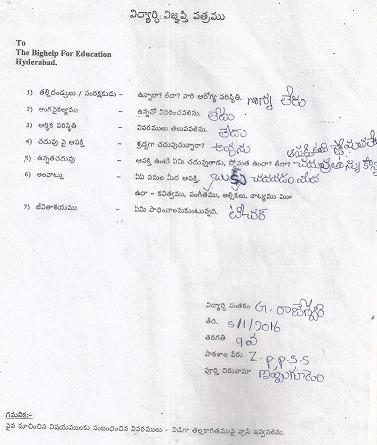 విద్యార్థి విజ్ఞప్తి పత్రము
To
The Bighelp For Education
Hyderabad.
1) తల్లిదండ్రులు / సంరక్షకుడు - ఉన్నారా? లేదా? వారి ఆరోగ్య పరిస్థితి. నాన్న లేరు
2) అంగవైకల్యము - ఉన్నచో వివరించవలెను. లేదు
3) ఆర్థిక పరిస్థితి - వివరములు తెలుపవలెను. లేదు
4) చదువు పై ఆసక్తి - శ్రద్ధగా చదువుచున్నారా? అవును
5) ఉన్నతచదువు - ఆసక్తి ఉంటే ఏమి చదువుతాడు, స్తోమత ఉందా? లేదా?
6) అలవాట్లు - ఏఏ పనుల మీద ఆసక్తి. బుక్స్ చదవడం మీద
ఉదా - కవిత్వము, సంగీతము, ఆర్టికలు, నాట్యము మొ॥
7) జీవితాశయము - ఏమి సాధించాలనుకుంటున్నది. టీచర్
విద్యార్థి సంతకం G. రాజేశ్వరి
తేది. 5/1/2016
తరగతి 9వ
పాఠశాల పేరు Z.P.P.S.S
పూర్తి చిరునామా
గమనిక:-
పైన సూచించిన విషయములకు సంబంధించిన వివరములు - విడిగా తెల్లకాగితముపై వ్రాసి ఇవ్వవలెను.